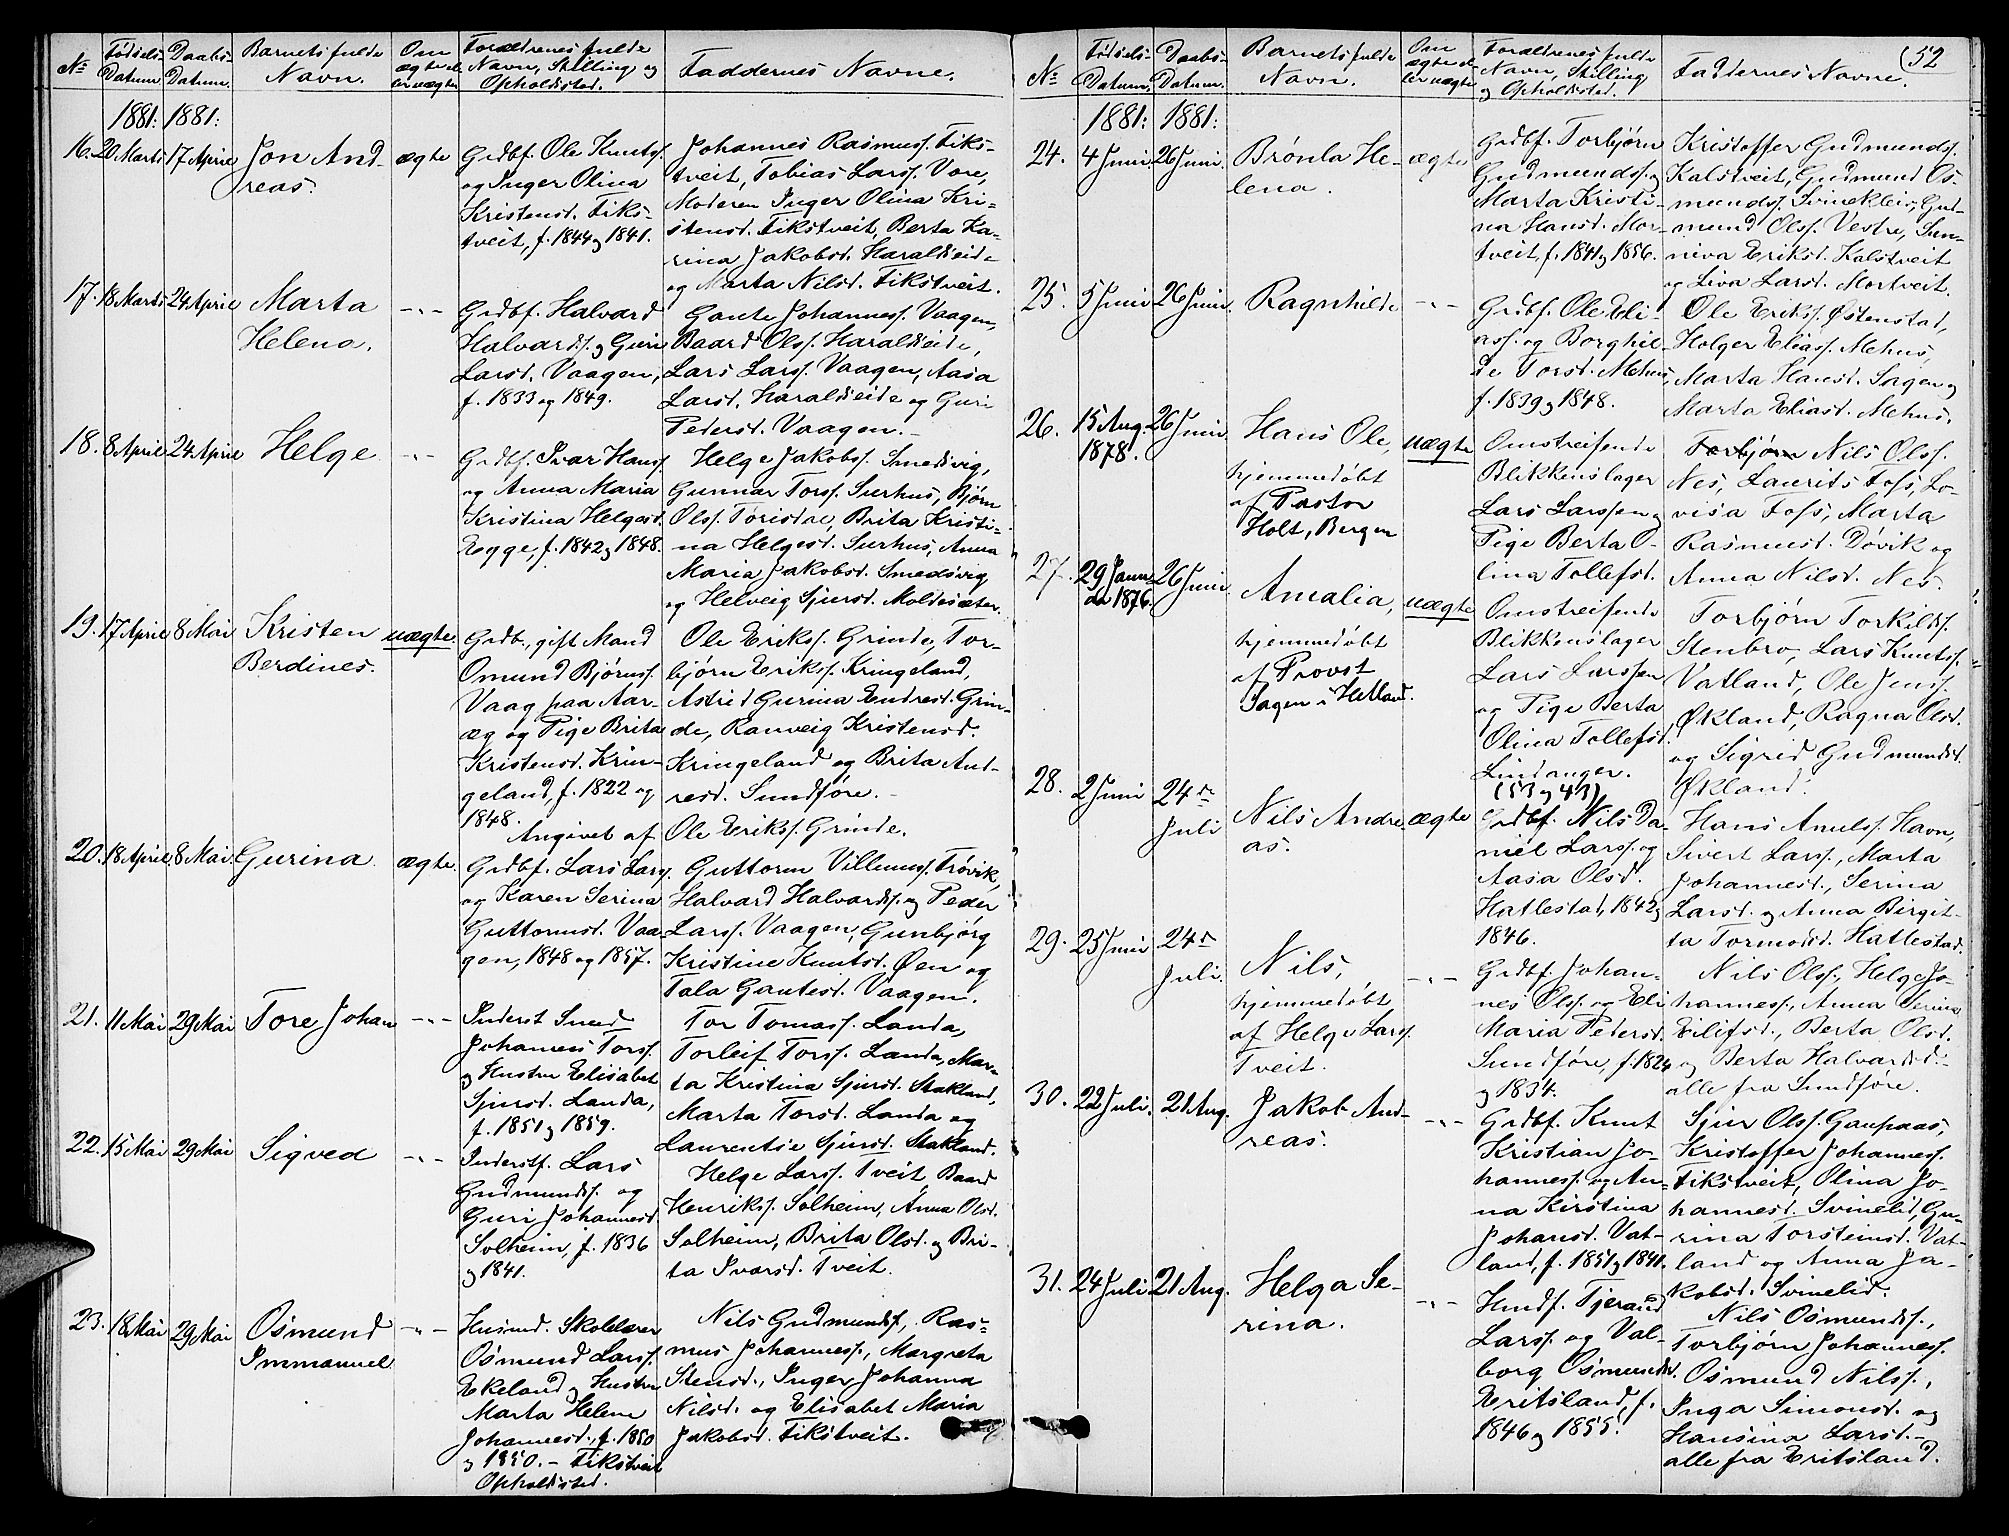 52
No
Fødsels-
Datum.
Daabs-
Datum.
Barnets fulde
Navn.
Om
ægte el-
ler uægte
Forældrenes fulde
Navn, Stilling og
Opholdssted.
Faddernes Navne.
1881: 1881:
16. 20 Marts 17 April
Jon And-
reas.
ægte
Grdbf. Ole Knuts.
og Inger Olina
Kristensd. Fiks-
tveit, f. 1844 og 1841.
Johannes Rasmuss. Fiks-
tveit, Tobias Larss. Vore,
Moderen Inger Olina Kri-
stensd. Fikstveit, Berta Ka-
rina Jakobsd. Haraldseide
og Marta Nilsd. Fikstveit.
17. 18 Marts 24 April
Marta
Helena.
-"-
Grdbf. Halvard
Halvards. og Guri
Larsd. Vaagen,
f. 1833 og 1849.
Gaute Johanness. Vaagen,
Baard Olss. Haraldseide,
Lars Larss. Vaagen, Aasa
Larsd. Haraldseide og Guri
Pedersd. Vaagen.
18. 8 April 24 April
Helge
-"-
Grdbf. Ivar Hanss.
og Anna Maria
Kristina Helgesd.
Egge, f. 1842 og 1848.
Helge Jakobs. Smedsvig,
Gunnar Torss. Surhus, Bjørn
Olss. Toristae, Brita Kristi-
na Helgesd. Surhus, Anna
Maria Jakobsd. Smedsvig
og Helveig Sjursd. Moldesæter.
19. 17 April 8 Mai
Kristen
Berdines.
uægte.
Grdb., gift Mand
Omund Bjørnss.
Vaag paa Aar-
æg og Pige Brita
Kristensd. Krin-
geland, f. 1822 og
1848.
Angivet af
Ole Erikss. Grinde, Tor-
bjørn Erikss. Kringeland,
Astrid Gurina Endresd. Grin-
de, Ranveig Kristensd.
Kringeland og Brita And-
resd. Sundføre.
Ole Erikss. Grinde.
20. 18 April 8 Mai.
Gurina
ægte.
Grdbf. Lars Larss.
og Karen Serina
Guttormsd. Vaa-
gen, 1848 og 1857.
Guttorm Villumss. Trøvik,
Halvard Halvards. og Peder
Larss. Vaagen, Gunbjørg
Kristine Knutsd. Øen og
Tala Gautesd. Vaagen.
21. 11 Mai 29 Mai
Tore Johan
-"-
Inderst Smed
Johannes Torss.
og Hustru Elisabet
Sjursd. Landa,
f. 1851 og 1859.
Tor Tomass. Landa,
Torleif Torss. Landa, Mar-
ta Kristina Sjursd. Stakland,
Marta Torsd. Landa og
Laurentse Sjursd. Stakland.
22. 15 Mai 29 Mai
Sigved
-"-
Inderstf. Lars
Gudmunds. og
Guri Johannesd.
Solheim, f. 1836
og 1841.
Helge Larss. Tveit, Baard
Henrikss. Solheim, Anna Olsd.
Solheim, Brita Olsd. og Bri-
ta Ivarsd. Tveit.
23. 18 Mai 29 Mai
Osmund
Immanuel
-"-
Husmd. Skolelærer
Osmund Larss.
Ekeland og Hustru
Marta Helene
Johannesd. f. 1850
og 1850. - Fikstveit
Opholdssted.
Nils Gudmunds., Ras-
mus Johanness., Margreta
Stensd., Inger Johanna
Nilsd. og Elisabet Maria
Jakobsd. Fikstveit.
No
Fødsels-
Datum.
Daabs-
Datum.
Barnets fulde
Navn.
Om
ægte el-
ler uægte
Forældrenes fulde
Navn, Stilling
og Opholdssted.
Faddernes Navne.
1881: 1881:
24. 4 Juni 26 Juni
Brønla He-
lena.
ægte
Grdbf. Torbjørn
Gudmunds. og
Marta Kristi-
na Hansd. Mor-
tveit, f. 1841 og 1856.
Kristoffer Gudmunds.
Kalstveit, Gudmund Os-
munds. Svinekleis, Gud-
mund Olss. Vestre, Sun-
niva Eriksd. Kalstveit
og Siva Larsd. Mortveit.
25. 5 Juni 26 Juni.
Ragnhilde
-"-
Grdbf. Ole Eli-
ass. og Borghil-
de Torsd. Mehus,
f. 1839 og 1848.
Ole Erikss. Østenstad,
Holger Eliass. Mehus,
Marta Hansd. Sagen og
Marta Eliasd. Mehus.
26. 15 Aug. 26 Juni.
1878.
Hans Ole,
hjemmedøbt
af Pastor
Holt, Bergen
uægte
Omstreifende
Blikkenslager
Lars Larssen og
Pige Berta O-
lina Tollefsd.
Torbjørn Nils Olss.
Nes, Laurits Foss, Lo-
visa Foss, Marta
Rasmusd. Døvik og
Anna Nilsd. Nes.
27. 29 Janu- 26 Juni
ar 1876.
Amalia,
hjemmedøbt
af Provst
Sagen i Hetland.
uægte
Omstreifende
Blikkenslager
Lars Larssen
og Pige Berta
Olina Tollefsd.
Lindanger.
(53 og 43)
Torbjørn Torkilds.
Stenbro, Lars Knutss.
Vatland, Ole Jenss.
Økland, Ragna Olsd.
og Sigrid Gudmundsd.
Økland.
28. 2 Juni 24de
Juli
Nils Andre-
as.
ægte
Grdbf. Nils Da-
niel Larss. og
Aasa Olsd.
Hatlestad, 1842 og
1846.
Hans Amelss. Havn,
Sivert Larss., Marta
Johannesd., Serina
Larsd. og Anna Birgit-
ta Tormodsd. Hatlestad.
29. 25 Juni 24de
Juli.
Nils,
hjemmedøbt
af Helge Larss.
Tveit.
-"-
Grdbf. Johan-
nes Olss. og Eli
Maria Pedersd.
Sundføre, f. 1824
og 1834.
Nils Olss., Helge Jo-
hanness., Anna Serina
Eilifsd., Berta Olsd.
og Berta Halvardsd. -
alle fra Sundføre.
30. 22 Juli. 21 Aug.
Jakob And-
reas.
-"-
Grdbf. Knut
Kristian Jo-
hanness. og An-
na Kirstina
Johansd. Vat-
land, f. 1851 og 1841.
Sjur Olss. Gaupaas,
Kristoffer Johanness.
Fikstveit, Olina Jo-
hannesd. Svinelid, Gu-
rina Torsteinsd. Vat-
land og Anna Ja-
kobsd. Svinelid.
31. 24 Juli 21 Aug.
Helga Se-
rina.
-"-
Husdf. Tjerand
Larss. og Val-
borg Osmundsd.
Eritsland, f.
1846 og 1855.
Nils Osmunds.,
Torbjørn Johanness.
Osmund Nilss.,
Inga Simonsd. og
Hansina Larsd. -
alle fra Eritsland.